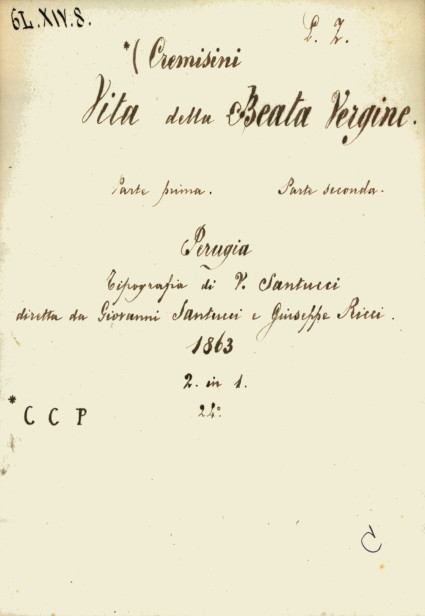 6L.XIV.8.
L. Z.
*( Cremisini
Vita della Beata Vergine.
Parte prima. Parte seconda.
Perugia
Tipografia di V. Santucci
diretta da Giovanni Santucci e Giuseppe Ricci.
1863
2. in 1.
24°
* C C P
C